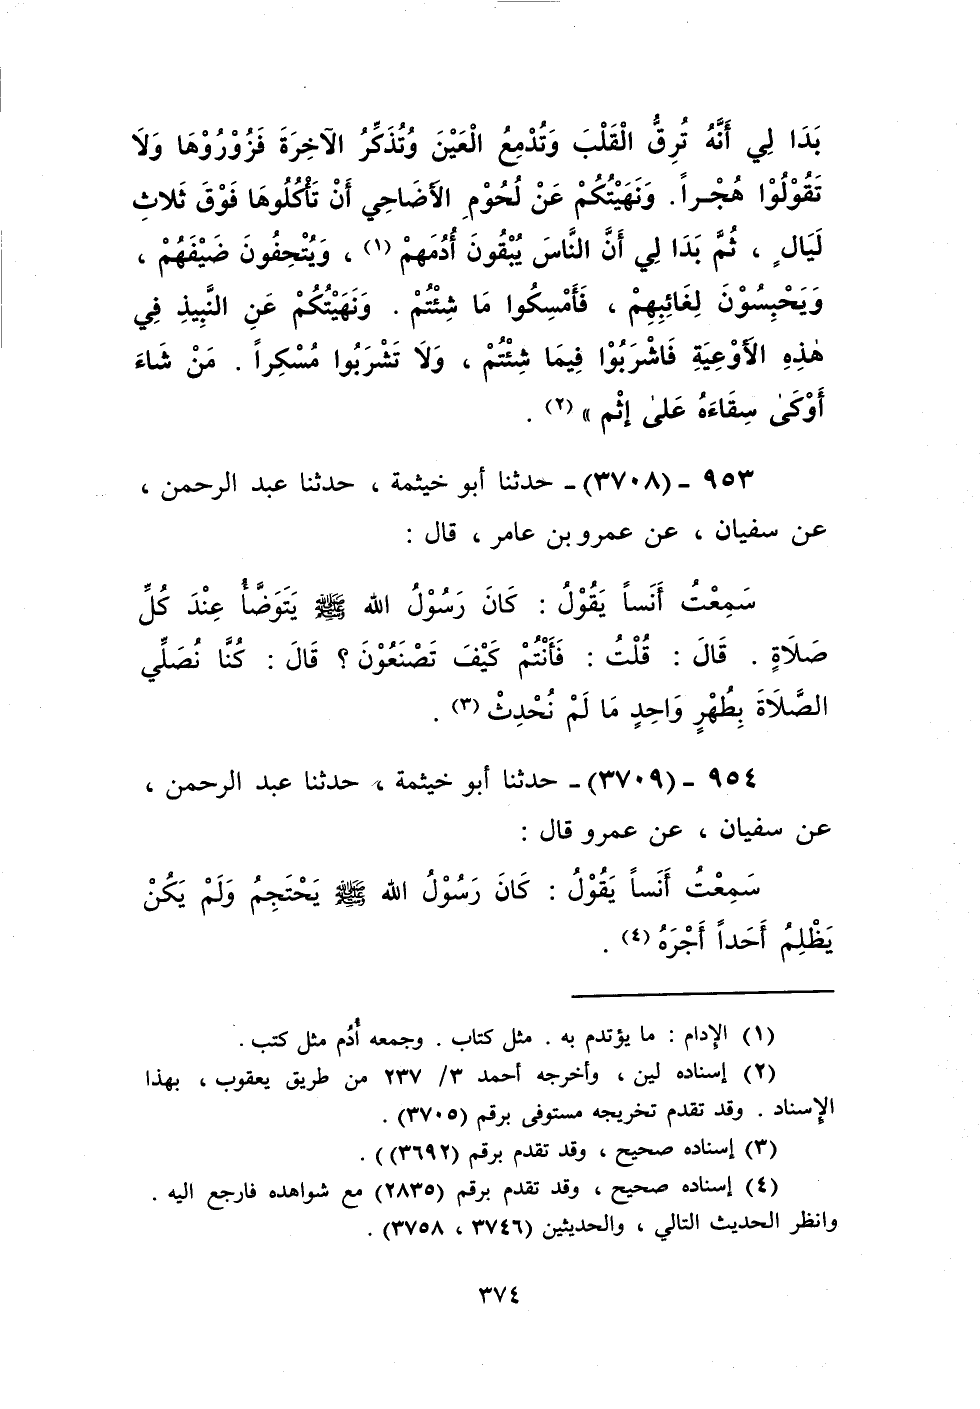 بَدَا لِي أَنَّهُ تُرِقُّ الْقَلْبَ وَتُدْمِعُ الْعَيْنَ وَتُذَكِّرُ الآخِرَةَ فَزُوْرُوْهَا وَلَا
تَقُوْلُوْا هُجْراً . وَنَهَيْتُكُمْ عَنْ لُحُوْمِ الأَضَاحِي أَنْ تَأْكُلُوهَا فَوْقَ ثَلاثِ
لَيَالٍ ، ثُمَّ بَدَا لِي أَنَّ النَّاسَ يُبْقُونَ أُدُمَهمْ (١) ، وَيُتْحِفُونَ ضَيْفَهُمْ ،
وَيَحْبِسُوْنَ لِغَائِبِهِمْ ، فَأَمْسِكُوا مَا شِئْتُمْ . وَنَهَيْتُكُمْ عَنِ النَّبِيذِ فِي
هٰذِهِ الأَوْعِيَةِ فَاشْرَبُوْا فِيمَا شِئْتُمْ ، وَلَا تَشْرَبُوا مُسْكِراً . مَنْ شَاءَ
أَوْكَىٰ سِقَاءَهُ عَلىٰ إِثْم » (٢) .
٩٥٣ - (٣٧٠٨) - حدثنا أبو خيثمة ، حدثنا عبد الرحمن ،
عن سفيان ، عن عمرو بن عامر ، قال :
سَمِعْتُ أَنَساً يَقُوْلُ : كَانَ رَسُوْلُ الله ﷺ يَتَوَضَّأُ عِنْدَ كُلِّ
صَلَاةٍ . قَالَ : قُلْتُ : فَأَنْتُمْ كَيْفَ تَصْنَعُوْنَ ؟ قَالَ : كُنَّا نُصَلِّي
الصَّلَاةَ بِطُهْرٍ وَاحِدٍ مَا لَمْ نُحْدِثْ (٣) .
٩٥٤ - (٣٧٠٩) - حدثنا أبو خيثمة ، حدثنا عبد الرحمن ،
عن سفيان ، عن عمرو قال :
سَمِعْتُ أَنَساً يَقُوْلُ : كَانَ رَسُوْلُ الله ﷺ يَحْتَجِمُ وَلَمْ يَكُنْ
يَظْلِمُ أَحَداً أَجْرَهُ (٤) .
(١) الإِدام : ما يؤتدم به . مثل كتاب . وجمعه أُدُم مثل كتب .
(٢) إسناده لين ، وأخرجه أحمد ٣/ ٢٣٧ من طريق يعقوب ، بهذا
الإِسناد . وقد تقدم تخريجه مستوفى برقم (٣٧٠٥) .
(٣) إسناده صحيح ، وقد تقدم برقم (٣٦٩٢) ) .
(٤) إسناده صحيح ، وقد تقدم برقم (٢٨٣٥) مع شواهده فارجع اليه .
وانظر الحديث التالي ، والحديثين (٣٧٤٦ ، ٣٧٥٨) .
٣٧٤